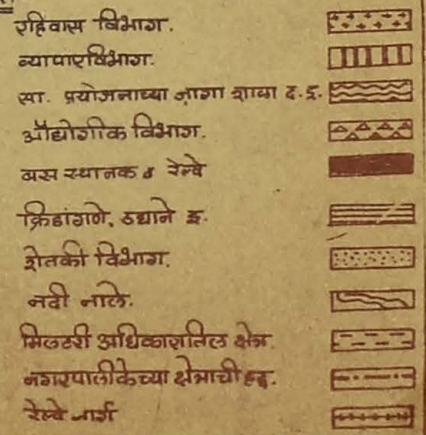 रहिवास विभाग.
व्यापारविभाग.
सा. प्रयोजनाच्या जागा शाळा द. इ.
औद्योगीक विभाग.
बस स्थानक व रेल्वे
क्रिडांगणे, उद्याने इ.
शेतकी विभाग.
नदी नाले.
मिलटरी अधिकारातिल क्षेत्र.
नगरपालीकेच्या क्षेत्राची हद्द.
रेल्वे मार्ग